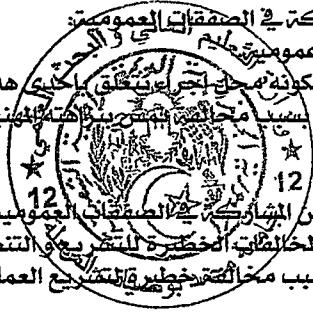 كة في الصفقات العمومية:
عمومية
كونه محل إجراء يتعلق بإحدى هذ
بسبب مخالفة تمس بنزاهته المهني
12 12
ن المشاركة في الصفقات العمومي
لمخالفات الخطيرة للتشريع و التنظ
بب مخالفة خطيرة لتشريع العمل